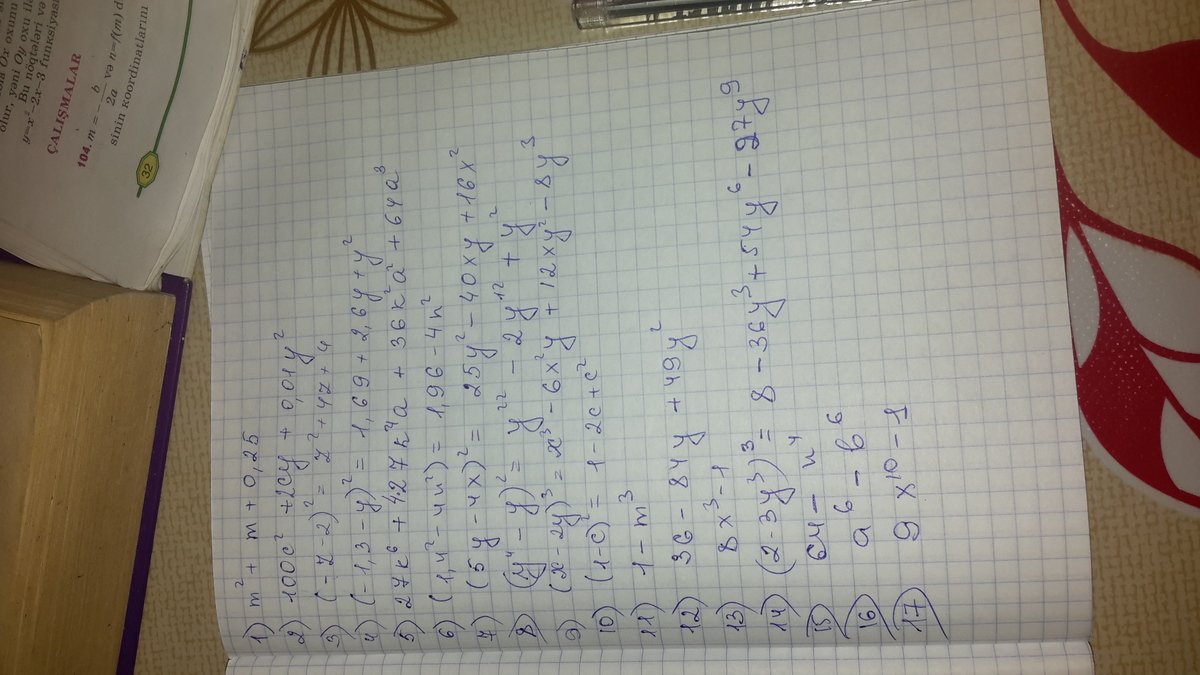 lona Ox oxunu
olur, yəni Oy oxu ilə
Bu nöqtələri və
y=x²-2x-3 funksiyası
ÇALIŞMALAR
104. m = - b/2a və n=f(m) d
sinin koordinatlarını
32
1) m² + m + 0,25
2) 100c² + 2cy + 0,01y²
3) (-z-2)² = z² + 4z + 4
4) (-1,3 - y)² = 1,69 + 2,6y + y²
5) 27k⁶ + 4·27k⁴a + 36k²a² + 64a³
6) (1,4² - 4n²) = 1,96 - 4n²
7) (5y - 4x)² = 25y² - 40xy + 16x²
8) (y⁴ - y)² = y²² - 2y¹² + y²
9) (x - 2y)³ = x³ - 6x²y + 12xy² - 8y³
10) (1-c)² = 1 - 2c + c²
11) 1 - m³
12) 36 - 84y + 49y²
13) 8x³ - 1
14) (2 - 3y³)³ = 8 - 36y³ + 54y⁶ - 27y⁹
15) 64 - n⁴
16) a⁶ - b⁶
17) 9x¹⁰ - 1